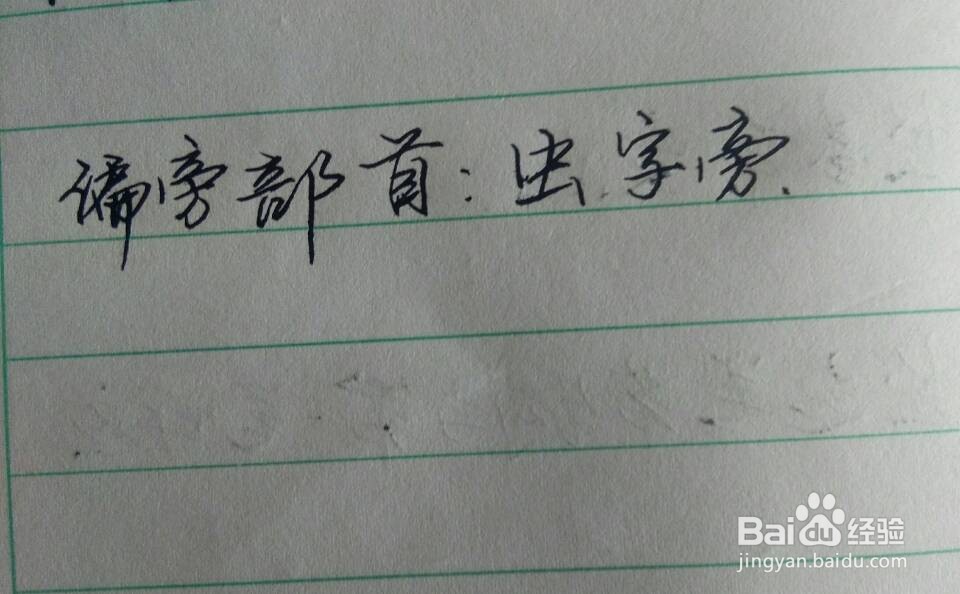 偏旁部首:虫字旁.
Baidu经验
jingyan.baidu.com